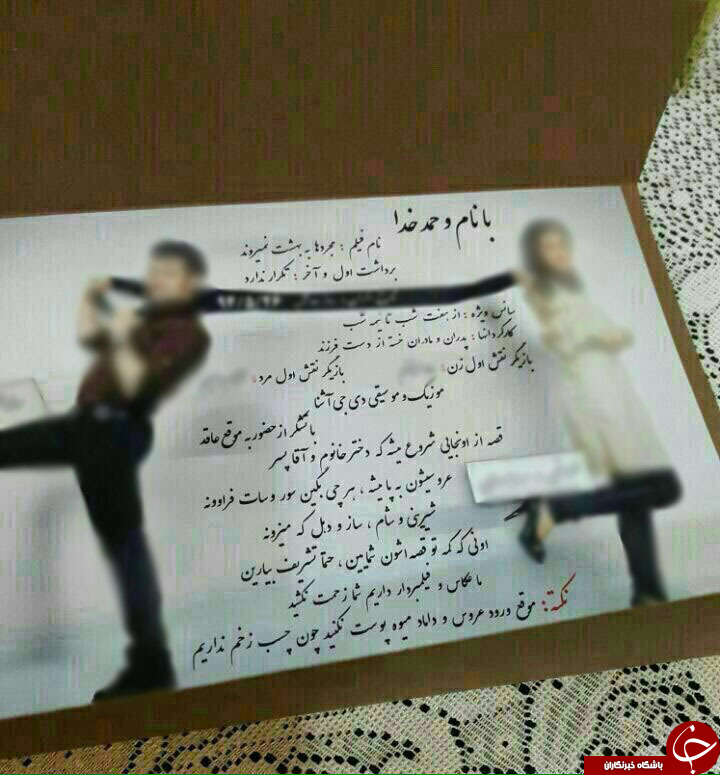 با نام و حمد خدا
نام فیلم : مجردها به بهشت نمیروند
برداشت اول و آخر : تکرار ندارد
۹۶/۵/۲۶
سانس ویژه : از هفت شب تا نیمه شب
کارگردانها : پدران و مادران خسته از دست فرزند
بازیگر نقش اول زن:
بازیگر نقش اول مرد:
موزیک و موسیقی دی جی آشنا
با تشکر از حضور به موقع عاقد
قصه از اونجایی شروع میشه که دختر خانوم و آقا پسر
عروسیشون به پا میشه ، هر چی بگین سور و سات فراوونه
شیرینی و شام ، ساز و دهل که میزنه
اونی که کمه تو قصه اشون شمایین ، حتما تشریف بیارین
ما عکاس و فیلمبردار داریم شما زحمت نکشید
نکته: موقع ورود عروس و داماد میوه پوست نکنید چون چسب زخم نداریم
باشگاه خبرنگاران